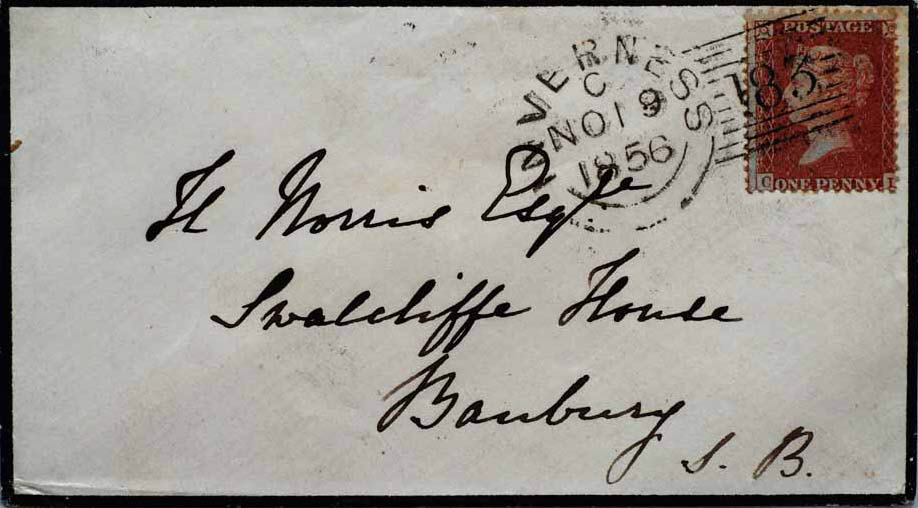 POSTAGE
INVERNESS
C
NO 19
1856
183
C ONE PENNY I
H Norris Esqre
Swalcliffe House
Banbury
S. B.